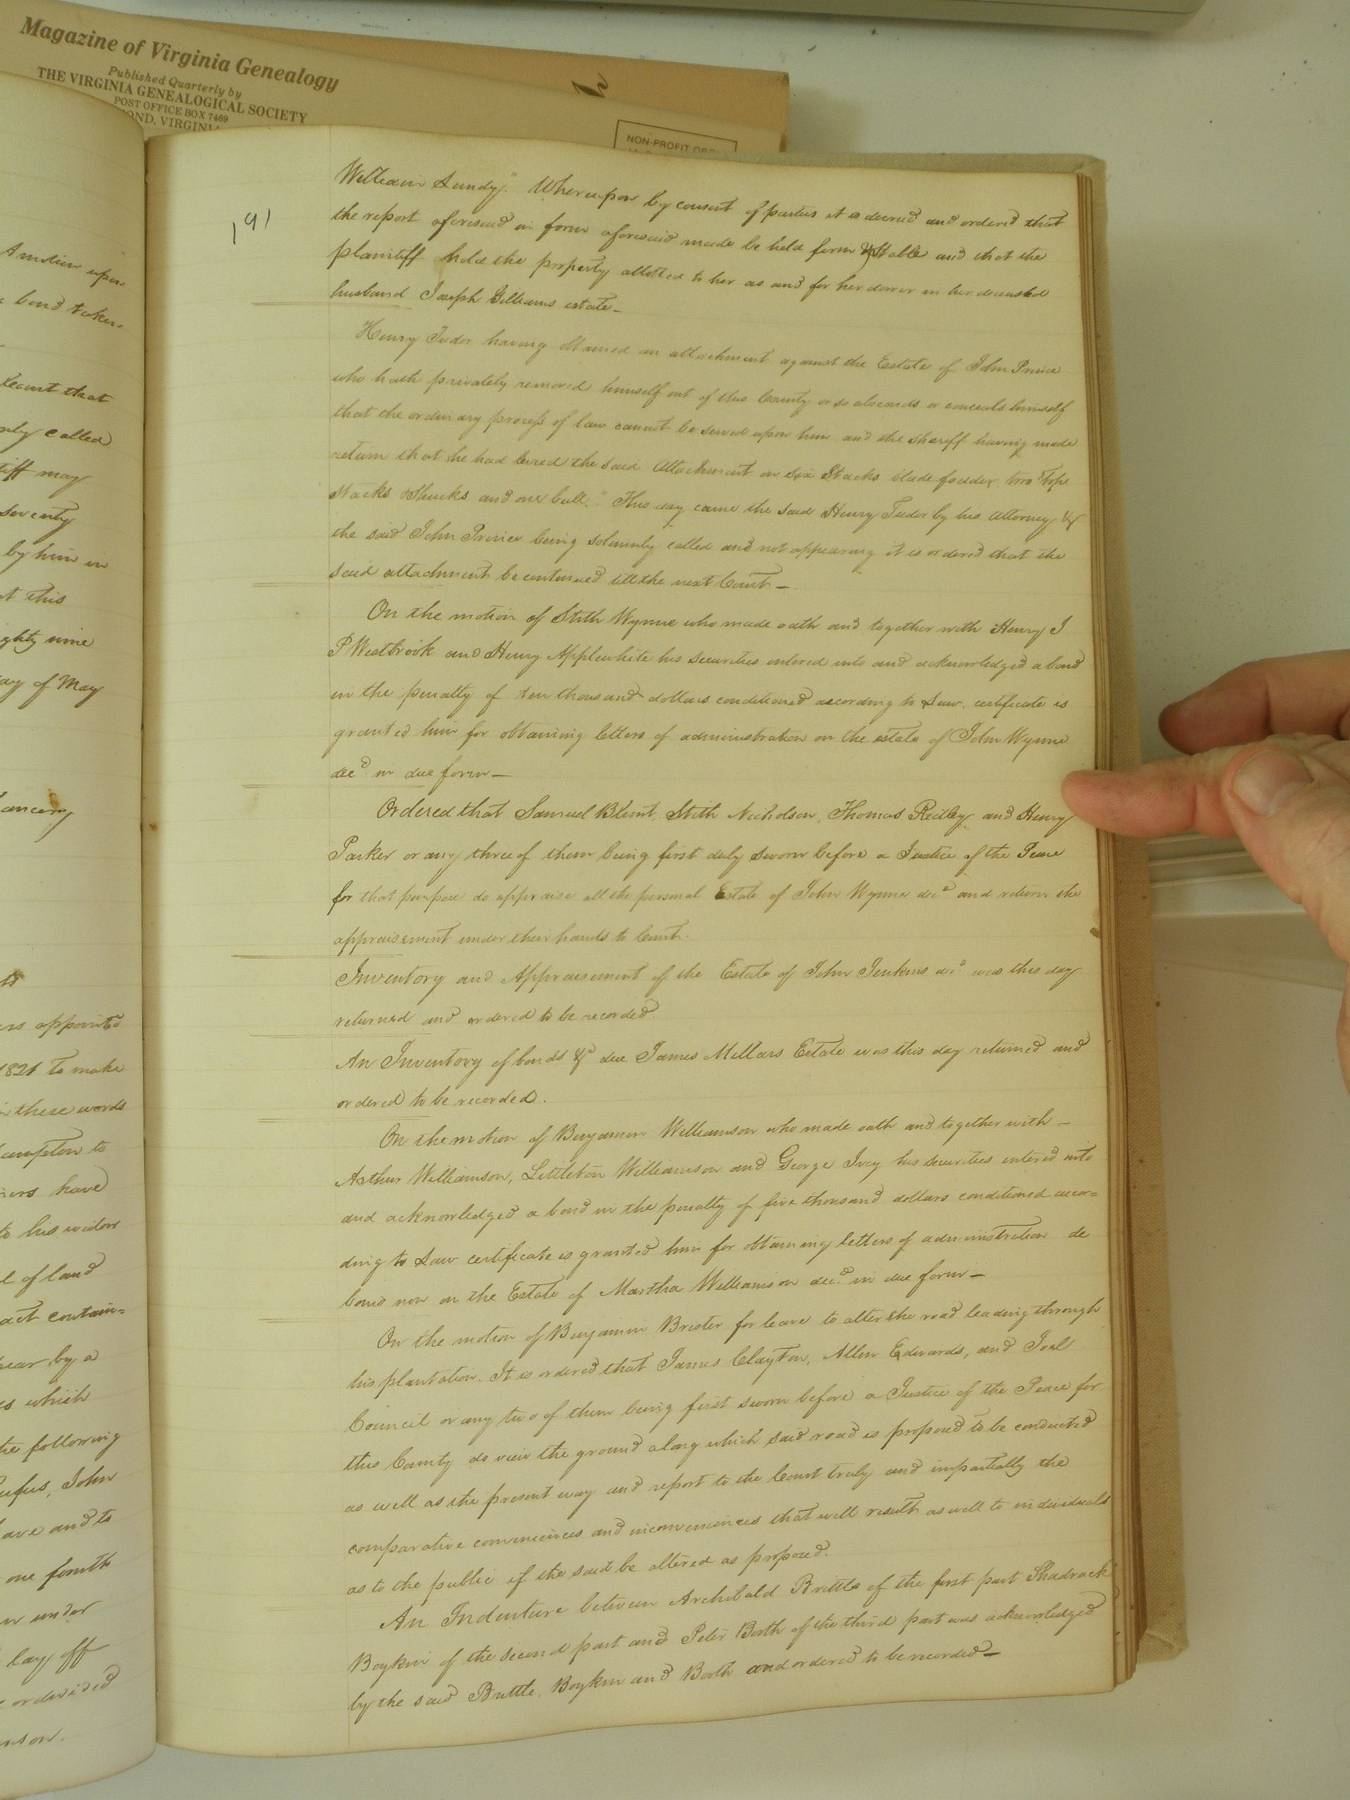 Magazine of Virginia Genealogy
Published Quarterly by
THE VIRGINIA GENEALOGICAL SOCIETY
POST OFFICE BOX 7469
OND, VIRGINIA
NON-PROFIT ORG
191
William Gundy." Whereupon by consent of parties it is decreed and ordered that
the report aforesaid in form aforesaid made be held firm & Stable and that the
plaintiff hold the property allotted to her as and for her dower in her deceased
husband Joseph Gilliams estate_
Henry Tudor having obtained an attachment against the Estate of John Prince
who hath privately removed himself out of this County or so absconds or conceals himself
that the ordinary process of law cannot be served upon him and the sheriff having made
return that he had levied the said Attachment on six Stacks blade fodder, two Tops
stacks Shucks and one bull." This day came the said Henry Tudor by his Attorney &
the said John Prince being solemnly called and not appearing it is ordered that the
said attachment be continued till the next Court_
On the motion of Stith Wynne who made oath and together with Henry J
P Westbrook and Henry Applewhite his securities entered into and acknowledged a bond
in the penalty of ten thousand dollars conditioned according to Law, certificate is
granted him for obtaining letters of administration on the estate of John Wynne
decd in due form_
Ordered that Samuel Blunt, Stith Nicholson, Thomas Ridley and Henry
Parker or any three of them being first duly sworn before a Justice of the Peace
for that purpose do appraise all the personal Estate of John Wynne decd and return the
appraisement under their hands to Court.
Inventory and Appraisement of the Estate of John Jenkins decd was this day
returned and ordered to be recorded
An Inventory of bonds &c due James Millars Estate was this day returned and
ordered to be recorded.
On the motion of Benjamin Williamson who made oath and together with_
Arthur Williamson, Littleton Williamson and George Ivey his securities entered into
and acknowledged a bond in the penalty of five thousand dollars conditioned accor=
ding to Law certificate is granted him for obtaining letters of administration de
bonis non on the Estate of Martha Williamson decd in due form_
On the motion of Benjamin Brister for leave to alter the road leading through
his plantation. It is ordered that James Clayton, Allen Edwards, and Joel
Council or any two of them being first sworn before a Justice of the Peace for
this County do view the ground along which said road is proposed to be conducted
as well as the present way and report to the Court truly and impartially the
comparative conveniences and inconveniences that will result as well to individuals
as to the public if the said be altered as proposed.
An Indenture between Archibald Brittle of the first part Shadrack
Boykin of the second part and Peter Booth of the third part was acknowledged
by the said Brittle, Boykin and Booth and ordered to be recorded_
A motion upon
bond taken
Court that
called
tiff may
seventy
by him in
at this
ghty nine
ay of May
ancery
ers appointed
1821 to make
in these words
ampton to
ners have
to his widow
l of land
act contain=
year by a
es which
the following
ufus, John
ave and to
one fourth
under
lay off
or divided
nson.